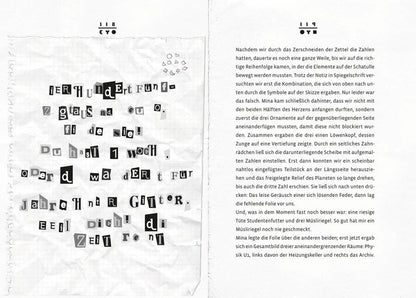 IER HUNDERT FÜNF-
Z
fi
Du hast 1 Woch
oder du war der t für
Jahre hinter Gitter.
Eeil Dich! di
Zeit rennt
Nachdem wir durch das Zerschneiden der Zettel die Zahlen
hatten, dauerte es noch eine ganze Weile, bis wir auf die rich-
tige Reihenfolge kamen, in der die Elemente auf der Schatulle
bewegt werden mussten. Trotz der Notiz in Spiegelschrift ver-
suchten wir erst die Kombination, die sich von oben nach un-
ten durch die Symbole auf der Skizze ergaben. Nur leider war
das falsch. Mina kam schließlich dahinter, dass wir nicht mit
den beiden Hälften des Herzens anfangen durften, sondern
zuerst die drei Ornamente auf der gegenüberliegenden Seite
aneinanderfügen mussten, damit diese nicht blockiert wur-
den. Zusammen ergaben die drei einen Löwenkopf, dessen
Zunge auf eine Vertiefung zeigte. Durch ein seitliches Zahn-
rädchen ließ sich die darunterliegende Scheibe mit aufgemal-
ten Zahlen einstellen. Erst dann konnten wir ein scheinbar
nahtlos eingefügtes Teilstück an der Längsseite herauszie-
hen und das freigelegte Relief des Planeten so lange drehen,
bis auch die dritte Zahl erschien. Sie ließ sich nach unten drü-
cken: Das leise Geräusch einer sich lösenden Feder, dann lag
die fehlende Folie vor uns.
Und, was in dem Moment fast noch besser war: eine riesige
Tüte Studentenfutter und drei Müsliriegel. So gut hat mir ein
Müsliriegel noch nie geschmeckt.
Mina legte die Folie über die anderen beiden; erst jetzt ergab
sich ein Gesamtbild dreier aneinandergrenzender Räume: Phy-
sik U2, links davon der Heizungskeller und rechts das Archiv.